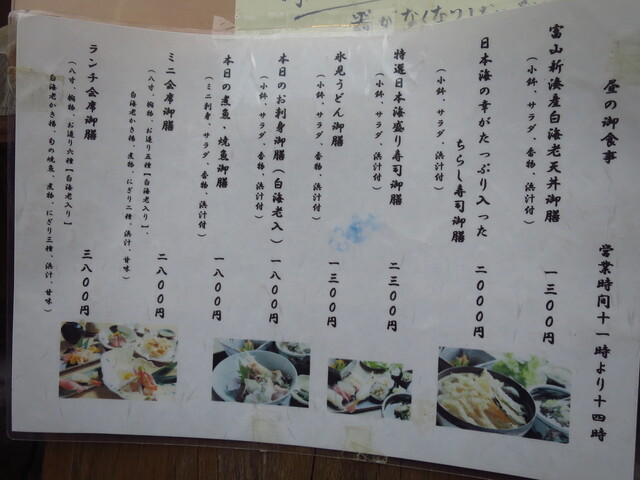 昼の御食事　営業時間十一時より十四時
富山新湊産白海老天丼御膳　一三〇〇円
（小鉢、サラダ、香物、浜汁付）
日本海の幸がたっぷり入った
ちらし寿司御膳　二〇〇〇円
（小鉢、サラダ、香物、浜汁付）
特選日本海盛り寿司御膳　二三〇〇円
（小鉢、サラダ、浜汁付）
氷見うどん御膳　一三〇〇円
（小鉢、サラダ、香物付）
本日のお刺身御膳（白海老入）　一八〇〇円
（小鉢、サラダ、香物、浜汁付）
本日の煮魚、焼魚御膳　一八〇〇円
（ミニ刺身、サラダ、香物、浜汁付）
ミニ会席御膳　二八〇〇円
（八寸、椀物、お造り五種【白海老入り】、
白海老かき揚、煮物、にぎり二種、浜汁、甘味）
ランチ会席御膳　三八〇〇円
（八寸、椀物、お造り六種【白海老入り】
白海老かき揚、旬の焼魚、煮物、にぎり三種、浜汁、甘味）